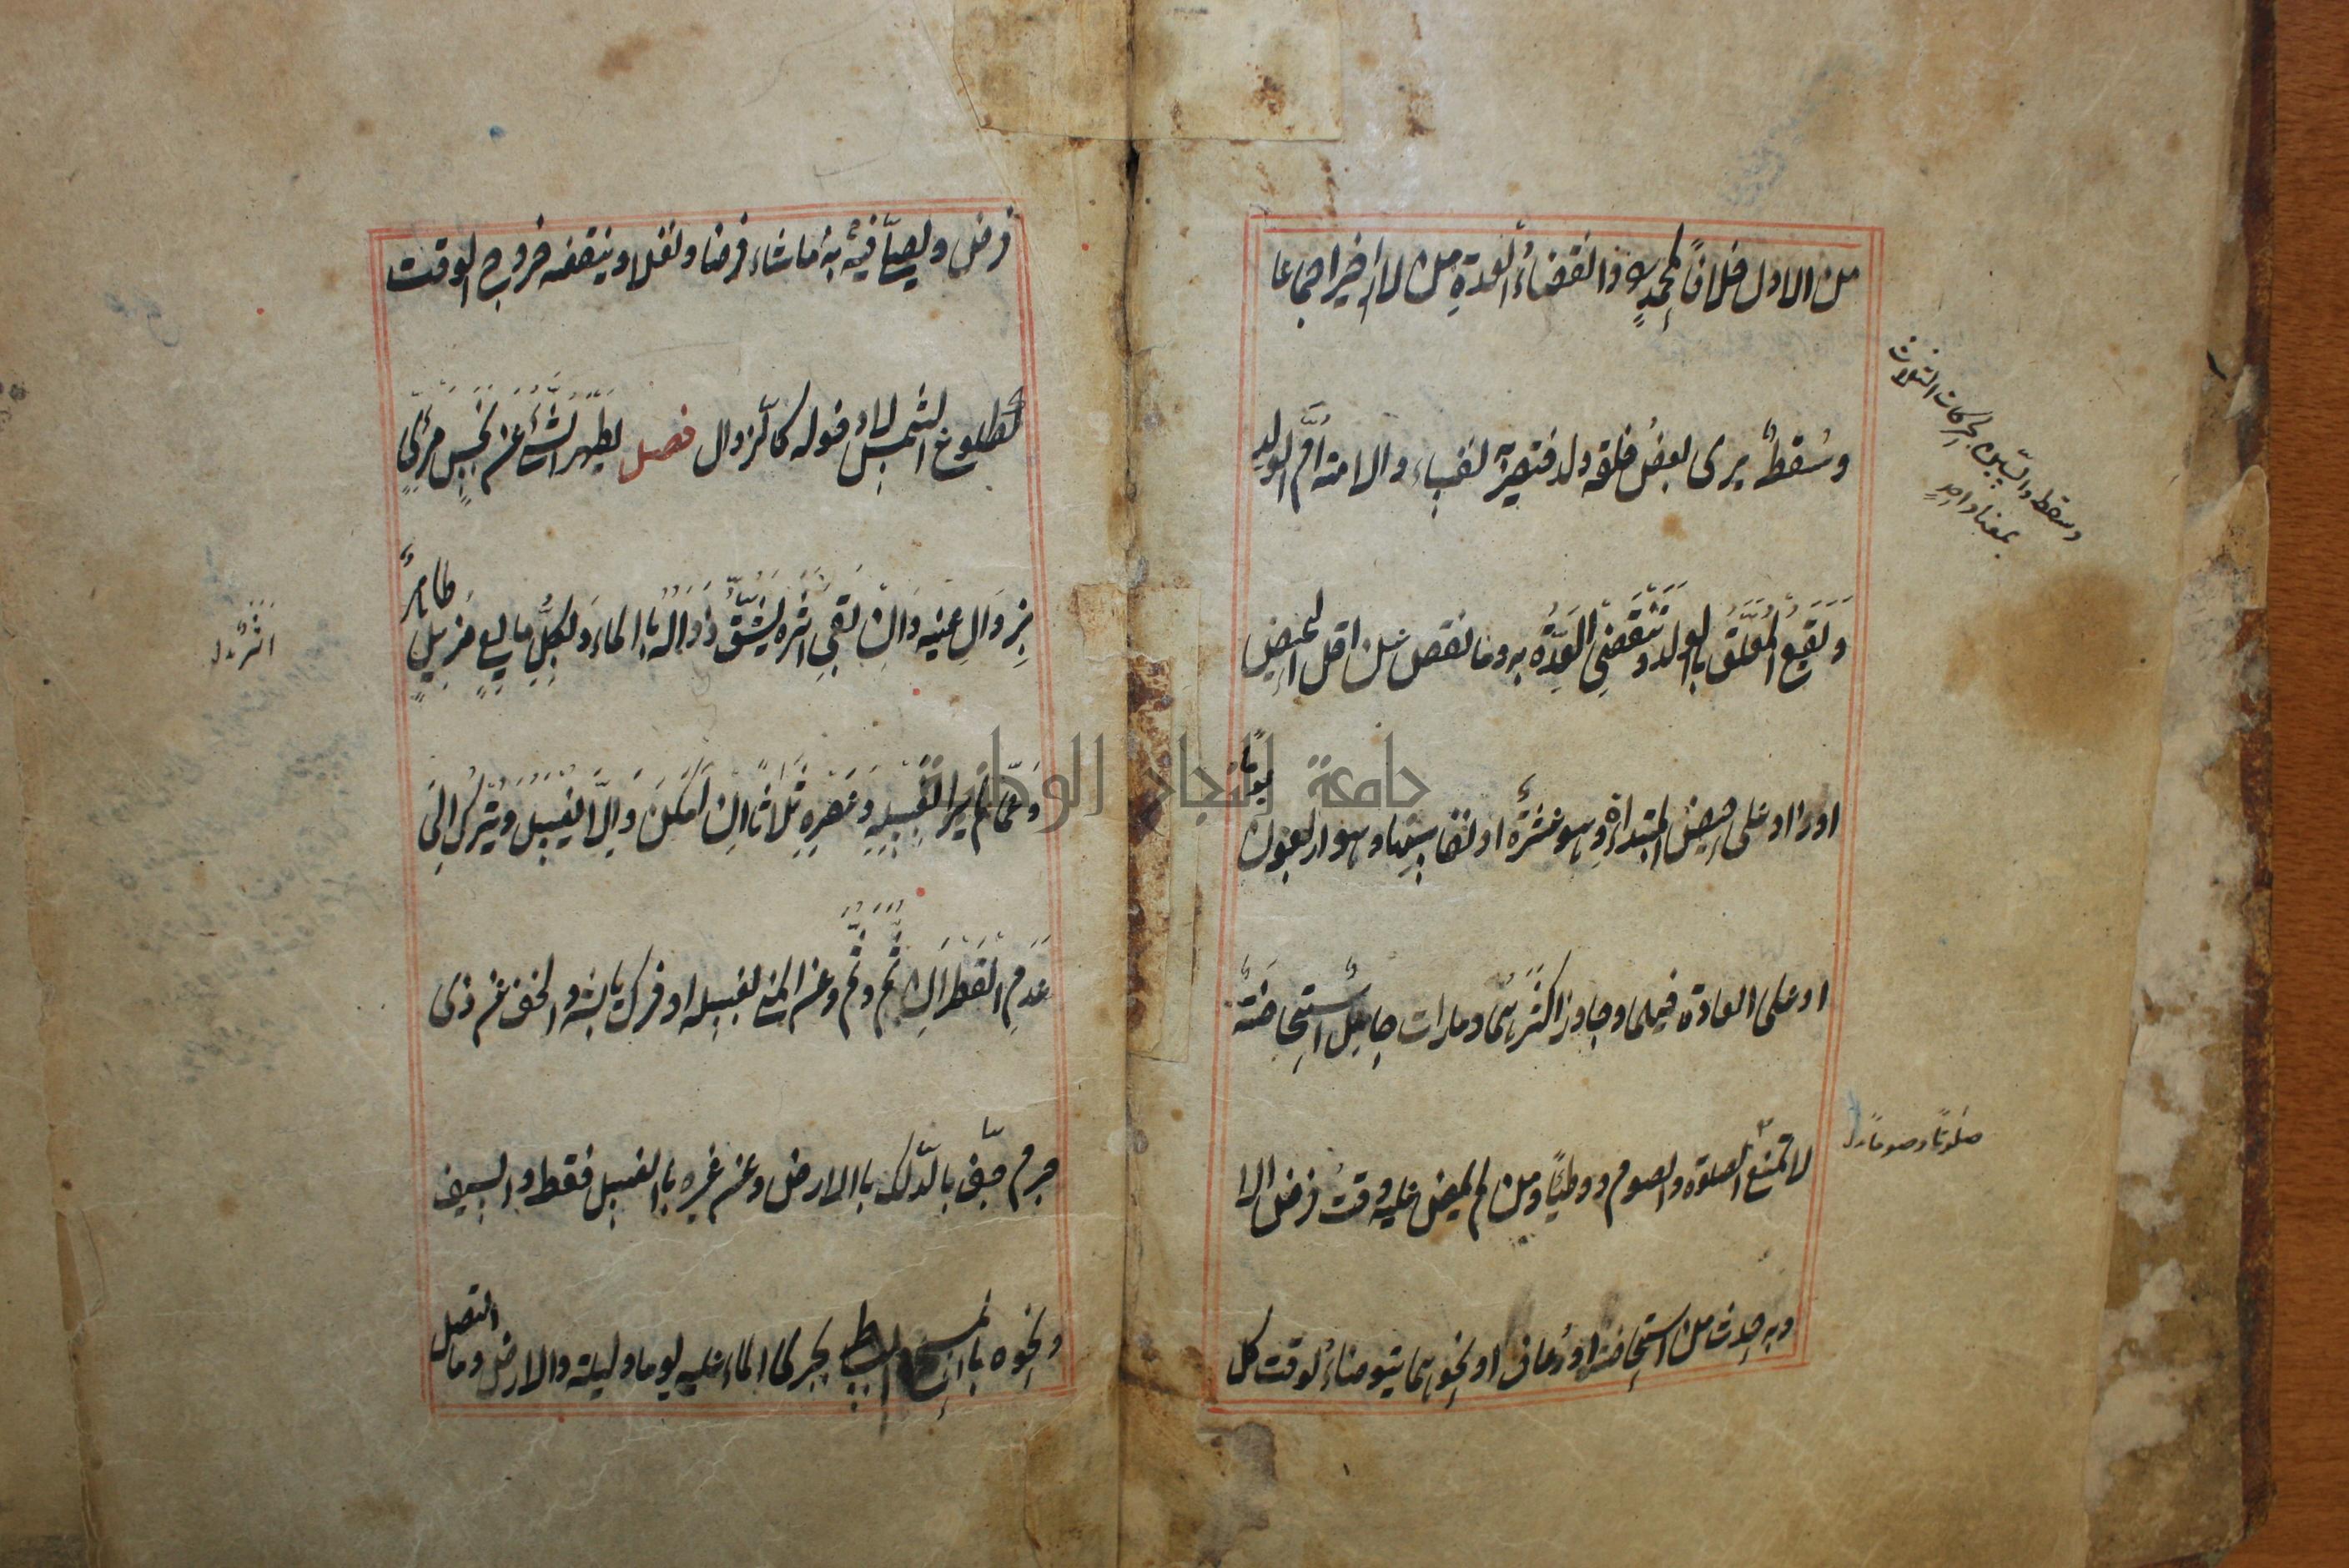 من الاول خلافًا لمحمدٍ رح وانقضاءُ العدةِ من الاخير اجماعا
وسُقطٌ يرى بعضُ خلقه ولد فتصيرُ به نفساء والامته اُمَّ الولدِ
وَيَقَعُ المُعَلَّقُ بالولد وَتَنْقَضِي العِدَّةُ به وما نقص عن اقل الحيض
اوزاد على حيض المبتداءةِ وهو عشرةٌ او نفاسها وهو اربعون
يومًا
او على العادة فيهما وجاوز اكثرَهُما وما رات حامل اسْتِحَاضَةٌ
لا تمنع الصلوة والصوم ووطيًا ومن لم يمض عليه وقتُ فرض الا
وبه حدث من استحاضة او رُعاف او نحوهما يتوضاءُ لوقت كل
وسقط والسين بالحركات الثلاث
بمعنا واحدٍ
صلوتًا وصومًا
فرض ويصلّي فيه به ما شاء فرضا ونفلا وينقضه خروج الوقت
كطلوع الشمس لا دخوله كالزوال فصل يطهر الشئُ عن نجسٍ مرئيٍّ
بِزَوَالِ عينه وَاِنْ بَقِيَ اثره يَشُقُّ زَوَالُهُ بالماء وبكلِّ مايعٍ مزيلٍ
طاهرٌ
وَعَمَّا لم يُرَ بغسلِهِ وَعَصْرِهِ ثَلَاثًا اِنْ اَمْكَنَ وَاِلَّا يُغْسَلُ وَيُتْرَكُ اِلَى
عَدَمِ القَطَرَانِ ثُمَّ وثُمَّ وعن المني بغسله او فرك يابسه والخف عن ذى
جرم جفّ بالدّلك بالارض وعن غيره بالغسل فقط والسيف
ونحوه بالمسح والبساط بجرى الماء عليه يوما وليلة والارض وما
اتصل
جامعة النجاح الوطنية